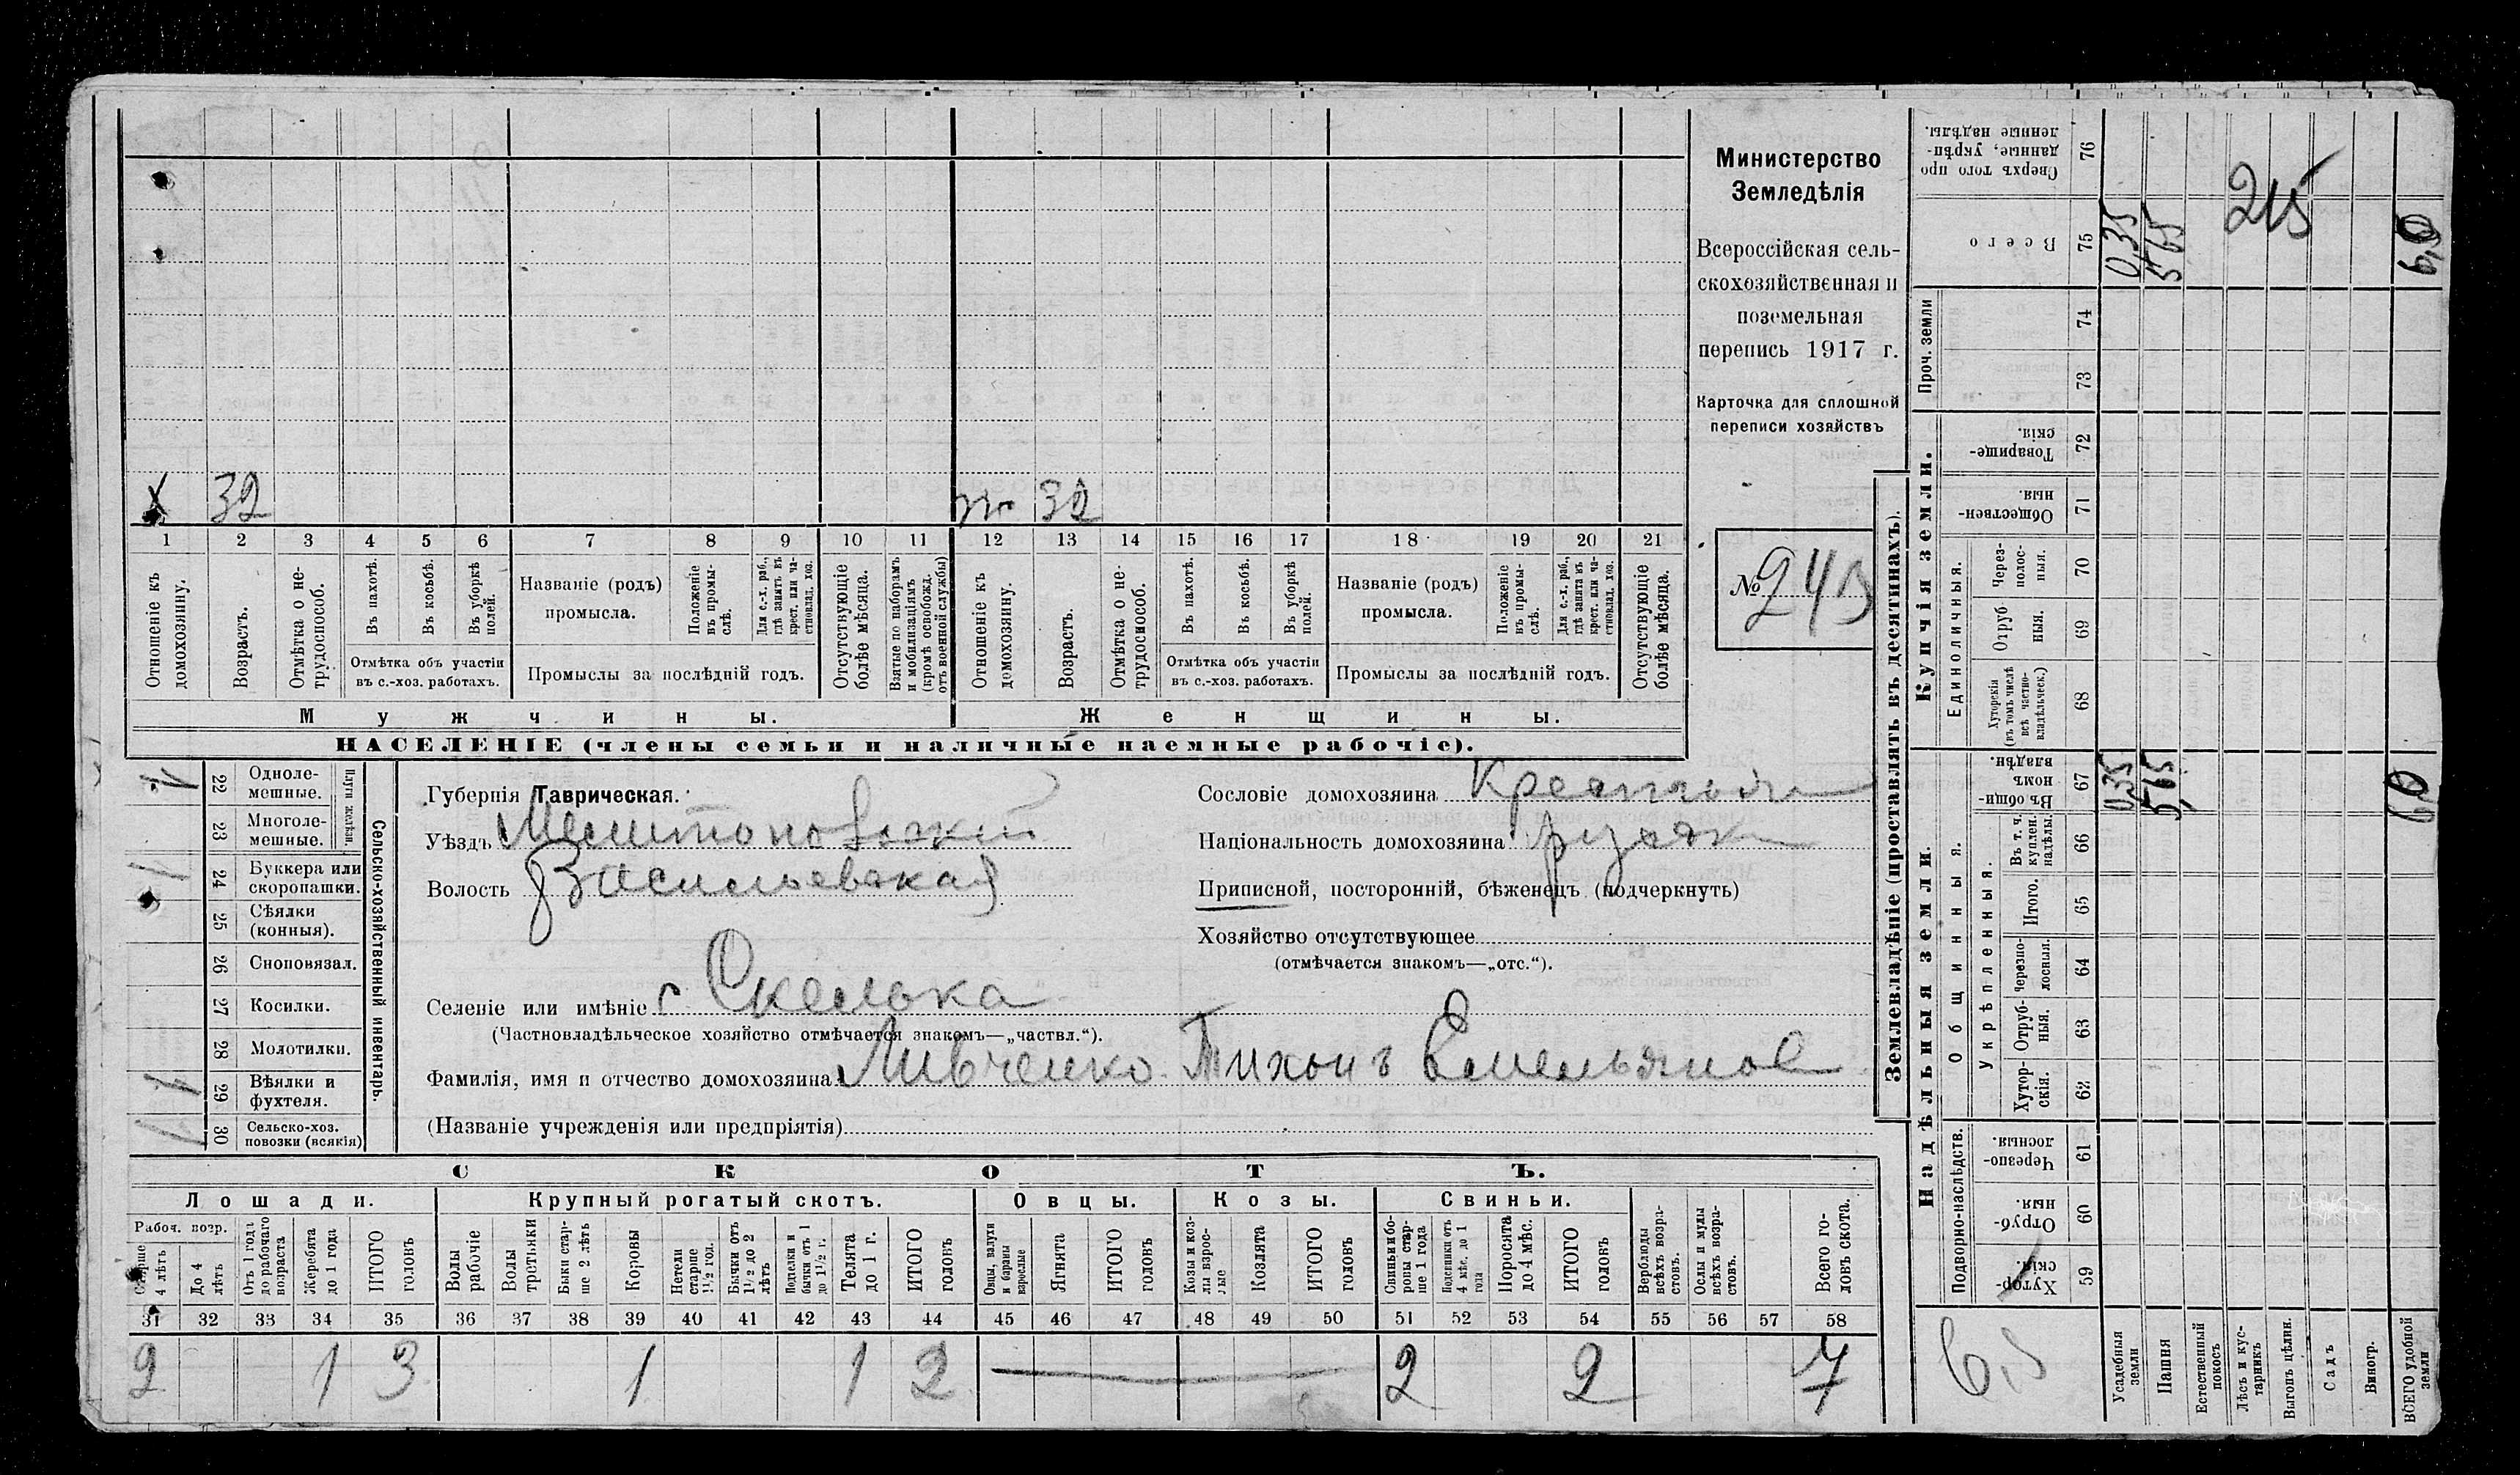 Х 32 ж 32
1 2 3 4 5 6 7 8 9 10 11 12 13 14 15 16 17 18 19 20 21
Отношеніе къ домохозяину.
Возрастъ.
Отмѣтка о нетрудоспособ.
Въ пахотѣ.
Въ косьбѣ.
Въ уборкѣ полей.
Отмѣтка объ участіи
въ с.-хоз. работахъ.
Названіе (родъ)
промысла.
Положеніе въ промыслѣ.
Для с.-х. раб., гдѣ занятъ въ крест. или частновлад. хоз.
Промыслы за послѣдній годъ.
Отсутствующіе болѣе мѣсяца.
Взятые по наборамъ и мобилизаціямъ (кромѣ освобожд. отъ военной службы)
Отношеніе къ домохозяину.
Возрастъ.
Отмѣтка о нетрудоспособ.
Въ пахотѣ.
Въ косьбѣ.
Въ уборкѣ полей.
Отмѣтка объ участіи
въ с.-хоз. работахъ.
Названіе (родъ)
промысла.
Положеніе въ промыслѣ.
Для с.-х. раб., гдѣ занята въ крест. или частновлад. хоз.
Промыслы за послѣдній годъ.
Отсутствующіе болѣе мѣсяца.
Мужчины. Женщины.
НАСЕЛЕНІЕ (члены семьи и наличные наемные рабочіе).
Министерство
Земледѣлія
Всероссійская сель-
скохозяйственная и
поземельная
перепись 1917 г.
Карточка для сплошной
переписи хозяйствъ
№ 243
Сельско-хозяйственный инвентарь.
Плуги желѣзн.
22 Одноле-
мешные.
23 Многоле-
мешные.
24 Буккера или
скоропашки.
25 Сѣялки
(конныя).
26 Сноповязал.
27 Косилки.
28 Молотилки.
29 Вѣялки и
фухтеля.
30 Сельско-хоз.
повозки (всякія)
1
1
1
1
Губернія Таврическая.
Уѣздъ Мелитопольскій
Волость Васильевская
Селеніе или имѣніе с Скелька
(Частновладѣльческое хозяйство отмѣчается знакомъ—„частвл.“).
Фамилія, имя и отчество домохозяина Ливченко Тихонъ Емельянов
(Названіе учрежденія или предпріятія)
Сословіе домохозяина Крестьян
Національность домохозяина русск
Приписной, посторонній, бѣженецъ (подчеркнуть)
Хозяйство отсутствующее
(отмѣчается знакомъ—„отс.“).
СКОТЪ.
Лошади. Крупный рогатый скотъ. Овцы. Козы. Свиньи.
Рабоч. возр.
Старше 4 лѣтъ
До 4 лѣтъ
Отъ 1 года до рабочаго возраста
Жеребята до 1 года
ИТОГО головъ
Волы рабочіе
Волы третьяки
Быки старше 2 лѣтъ
Коровы
Нетели старше 1½ год.
Бычки отъ 1½ до 2 лѣтъ
Подтелки и бычки отъ 1 до 1½ г.
Телята до 1 г.
ИТОГО головъ
Овцы, валухи и бараны взрослые
Ягнята
ИТОГО головъ
Козы и козлы взрослые
Козлята
ИТОГО головъ
Свиньи и боровы старше 1 года
Подсвинки отъ 4 мѣс. до 1 года
Поросята до 4 мѣс.
ИТОГО головъ
Верблюды всѣхъ возрастовъ.
Ослы и мулы всѣхъ возрастовъ.
Всего головъ скота.
31 32 33 34 35 36 37 38 39 40 41 42 43 44 45 46 47 48 49 50 51 52 53 54 55 56 57 58
2 1 3 1 1 2 2 2 7
Землевладѣніе (проставлять въ десятинахъ).
Купчія земли.
Надѣльныя земли.
Проч. земли
Единоличныя.
Общинныя.
Укрѣпленныя.
Подворно-наслѣдств.
Сверхъ того проданные, укрѣпленные надѣлы. 76
Всего 75 0,35 5,65 6,0
215
74
73
Товарищескія. 72
Общественныя. 71
Черезполосныя. 70
Отрубныя. 69
Хуторскія (въ томъ числѣ всѣ частновладѣльческ.) 68
Въ общинномъ владѣн. 67 0,35 5,65 6,0
Въ т. ч. куплен. надѣлы. 66
Итого. 65
Черезполосныя. 64
Отрубныя. 63
Хуторскія. 62
Черезполосныя. 61
Отрубныя. 60
Хуторскія. 59
Усадебныя земли
Пашня
Естественный покосъ
Лѣсъ и кустарникъ
Выгонъ цѣлин.
Садъ
Виногр.
ВСЕГО удобной земли